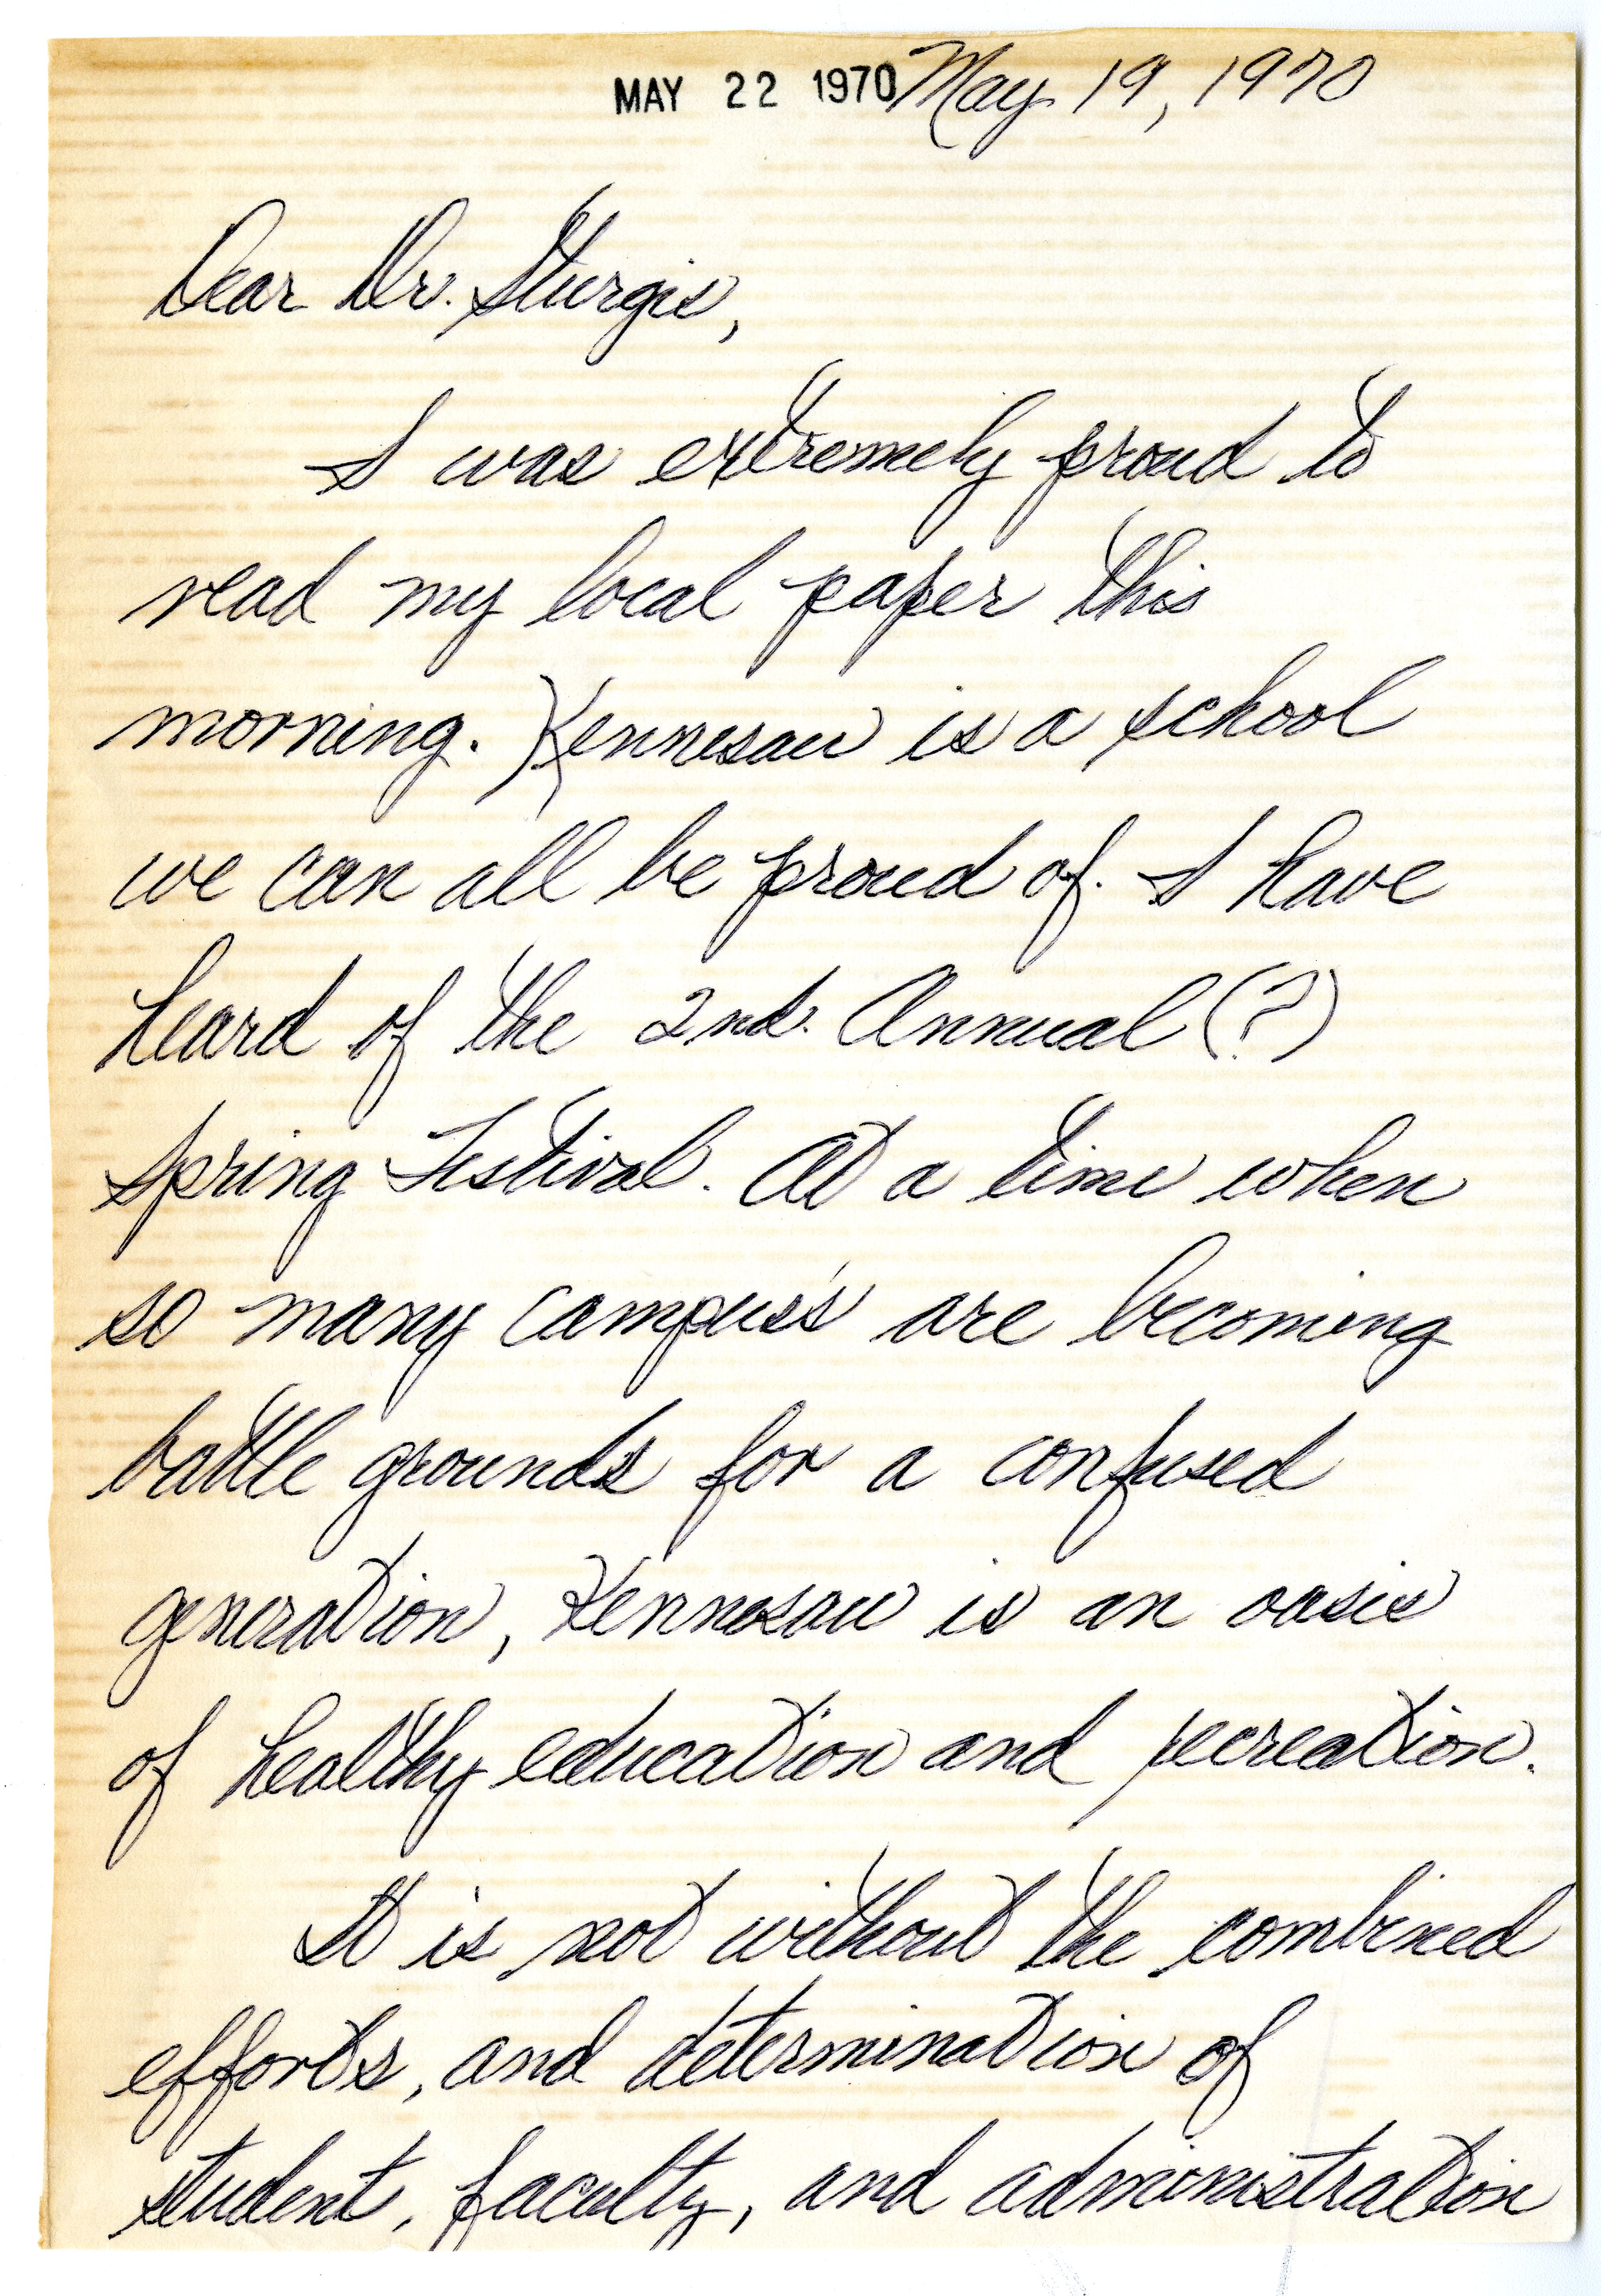 MAY 22 1970 May 19, 1970
Dear Dr. Sturgis,
I was extremely proud to
read my local paper this
morning. Kennesaw is a school
we can all be proud of. I have
heard of the 2nd. Annual (?)
Spring Festival. At a time when
so many campus's are becoming
battle grounds for a confused
generation, Kennesaw is an oasis
of healthy education and recreation.
It is not without the combined
efforts, and determination of
student, faculty, and administration